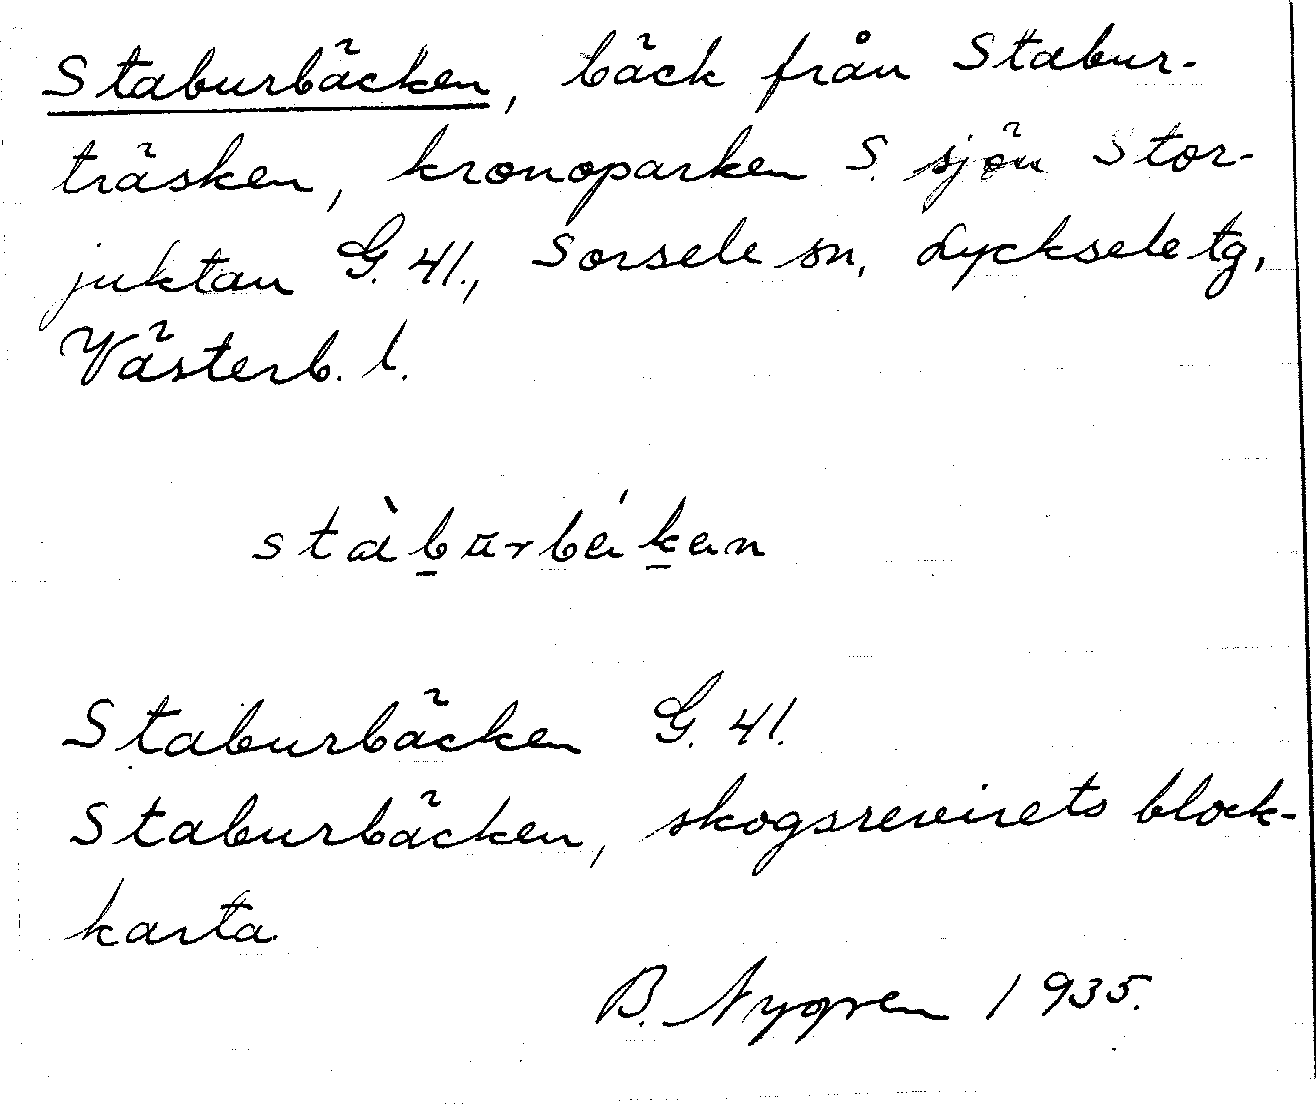 Staburbäcken, bäck från Stabur-
träsken, kronoparken S. sjön Stor-
juktan G. 41., Sorsele sn, Lycksele tg,
Västerb. l.
stàburbékan
Staburbäcken G. 41.
Staburbäcken, skogsrevirets block-
karta.
B. Nygren 1935.